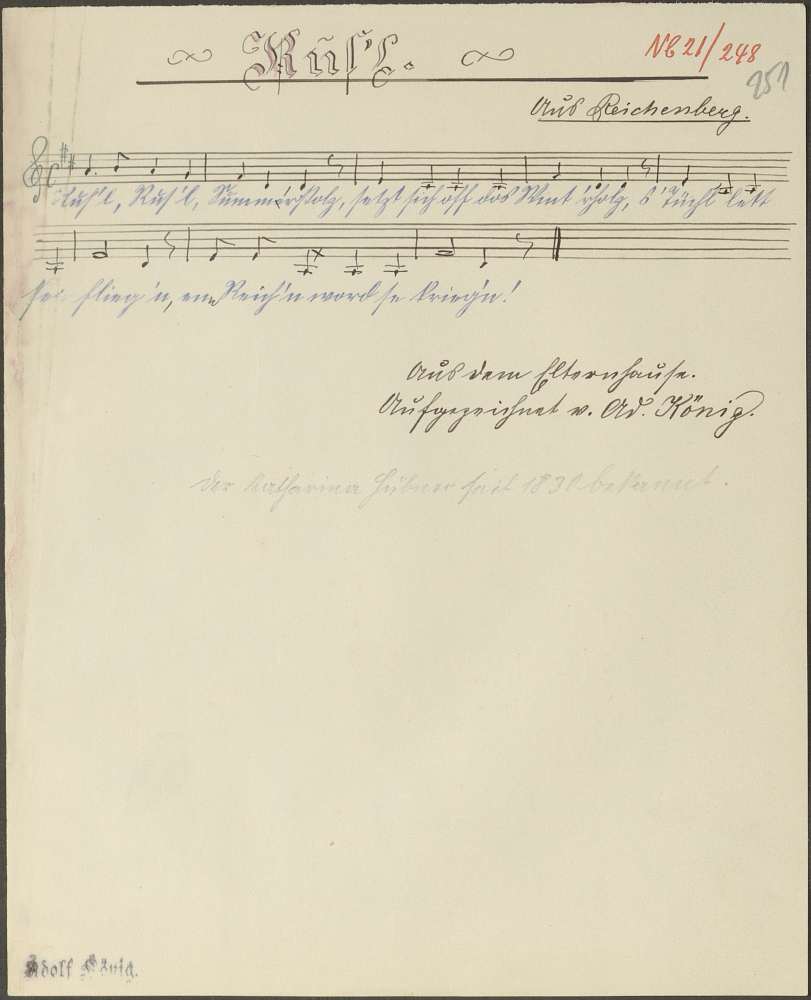 Rus'l.
NB 21/248
251
Aus Reichenberg.
Rus'l, Rus'l, Summer'sholz, setzt sich off dos Wint'rholz, s' Tüchl lett
flieg'n, en Reich'n word se krieg'n!
Aus dem Elternhause.
Aufgezeichnet v. Ad. König.
Der Katharina Hübner seit 1830 bekannt.
Adolf König.